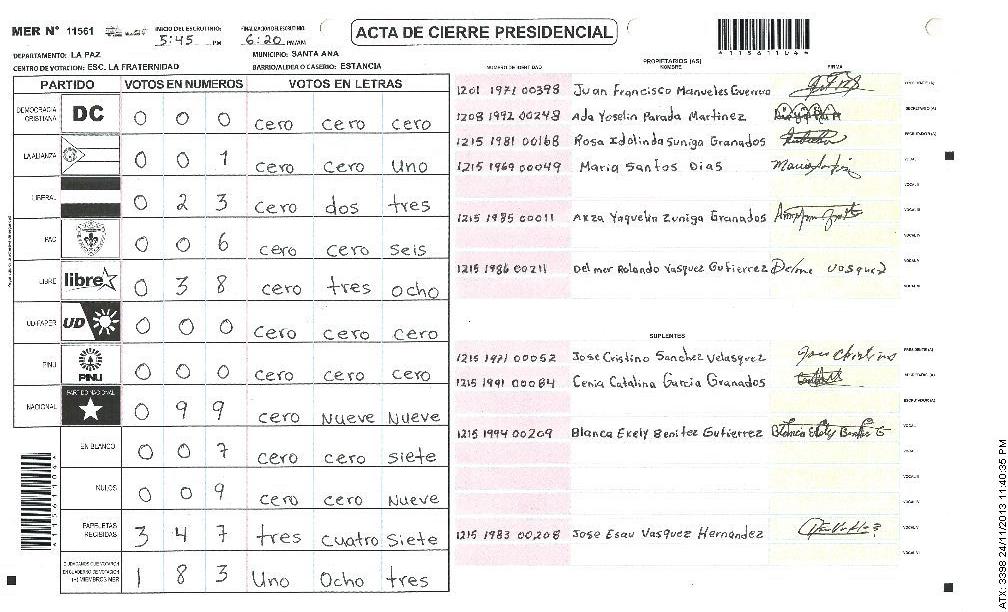 MER Nº 11561 INICIO DEL ESCRUTINIO: 5:45 PM FINALIZACION DEL ESCRUTINIO: 6:20 PM/AM
ACTA DE CIERRE PRESIDENCIAL
4115611044
DEPARTAMENTO: LA PAZ MUNICIPIO: SANTA ANA
CENTRO DE VOTACION: ESC. LA FRATERNIDAD BARRIO/ALDEA O CASERIO: ESTANCIA
PARTIDO VOTOS EN NUMEROS VOTOS EN LETRAS
DEMOCRACIA CRISTIANA DC 0 0 0 cero cero cero
LA ALIANZA 0 0 1 cero cero Uno
LIBERAL 0 2 3 cero dos tres
PAC 0 0 6 cero cero seis
LIBRE libre 0 3 8 cero tres ocho
UD/FAPER UD 0 0 0 cero cero cero
PINU PINU 0 0 0 cero cero cero
NACIONAL PARTIDO NACIONAL 0 9 9 cero Nueve Nueve
EN BLANCO 0 0 7 cero cero siete
NULOS 0 0 9 cero cero Nueve
PAPELETAS RECIBIDAS 3 4 7 tres cuatro Siete
CIUDADANOS QUE VOTARON EN CUADERNO DE VOTACION (+) MIEMBROS MER 1 8 3 Uno Ocho tres
PROPIETARIOS (AS)
NUMERO DE IDENTIDAD NOMBRE FIRMA
1201 1971 00398 Juan Francisco Manueles Guerrero
1208 1992 00248 Ada Yoselin Parada Martinez
1215 1981 00168 Rosa Idolinda Suniga Granados
1215 1969 00049 Maria Santos Dias
1215 1985 00011 Anza Yaquelin Zuniga Granados
1215 1986 00211 Delmer Rolando Vasquez Gutierrez Delme vasquez
SUPLENTES
1215 1971 00052 Jose Cristino Sanchez Velasquez
1215 1991 00084 Cenia Catalina Garcia Granados
1215 1994 00209 Blanca Exely Benitez Gutierrez
1215 1983 00208 Jose Esau Vasquez Hernandez
ATX: 3398 24/11/2013 11:40:35 PM